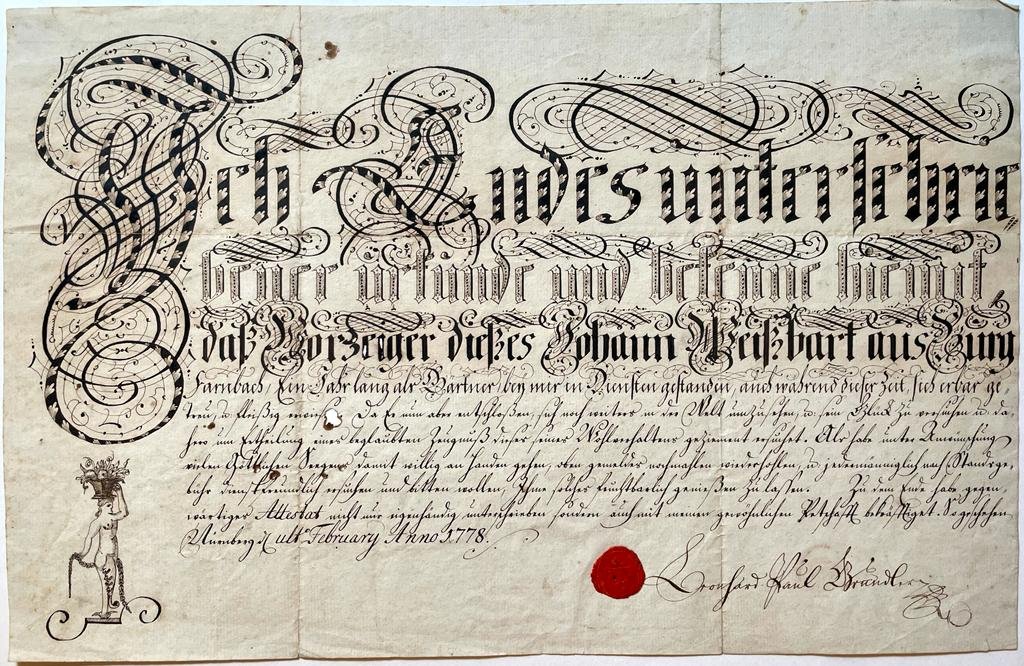 Ich Endesunterschrie
bener urkunde und bekenne hiemit,
daß Vorzeiger dießes Johann Weißbart aus Burg
farnbach, Ein Jahr lang als Gärtner bey mir in Diensten gestanden, auch während dieser Zeit, sich erbar ge
treu, u. fleißig erwiesen. Da Er nun aber entschloßen, sich noch weiters in der Welt umzusehen, u. sein Glück zu versuchen u. da,
hero um Ertheilung eines beglaubten Zeugniß dieses seines Wohlverhaltens geziemend ersuchet. Als habe unter Anwünschung
vielen Göttlichen Seegens damit willig an Handen gehen, oben gemeldes nochmahlen wiederhohlen, u. jedermänniglich nach Standsge,
bühr dienstfreundlich ersuchen und bitten wollen, Ihme solches fruchtbarlich genießen zu lassen. Zu dem Ende habe gegen,
wärtiges Attestat nicht nur eigenhändig unterschrieben sondern auch mit meinem gewöhnlichen Petschafft bekräfftiget. So geschehen
Nürnberg d. ult. February Anno 1778.
Leonhard Paul Gründler